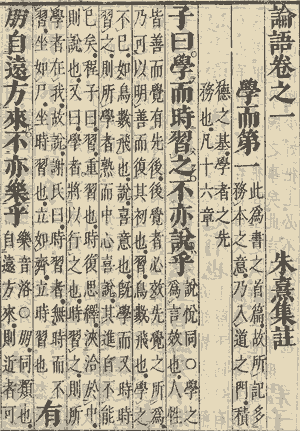 論語卷之一
朱熹集註
學而第一
此爲書之首篇故所記多
務本之意乃入道之門積
德之基學者之先
務也凡十六章
子曰學而時習之不亦說乎
說悅同○學之
爲言效也人性
皆善而覺有先後後覺者必效先覺之所爲
乃可以明善而復其初也習鳥數飛也學之
不已如鳥數飛也說喜意也旣學而又時時
習之則所學者熟而中心喜說其進自不能
已矣程子曰習重習也時復思繹浹洽於中
則說也又曰學者將以行之也時習之則所
學者在我故說謝氏曰時習者無時而不
習坐如尸坐時習也立如齊立時習也
有
朋自遠方來不亦樂乎
樂音洛○朋同類也
自遠方來則近者可